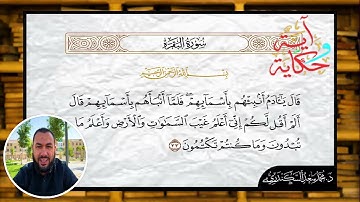 آية
و
حكاية
سُورَةُ البَقَرَةِ
بِسْمِ اللَّهِ الرَّحْمَٰنِ الرَّحِيمِ
قَالَ يَٰٓـَٔادَمُ أَنۢبِئْهُم بِأَسْمَآئِهِمْ ۖ فَلَمَّآ أَنۢبَأَهُم بِأَسْمَآئِهِمْ قَالَ
أَلَمْ أَقُل لَّكُمْ إِنِّىٓ أَعْلَمُ غَيْبَ ٱلسَّمَٰوَٰتِ وَٱلْأَرْضِ وَأَعْلَمُ مَا
تُبْدُونَ وَمَا كُنتُمْ تَكْتُمُونَ ٣٣
د. محمد سعد السكندري